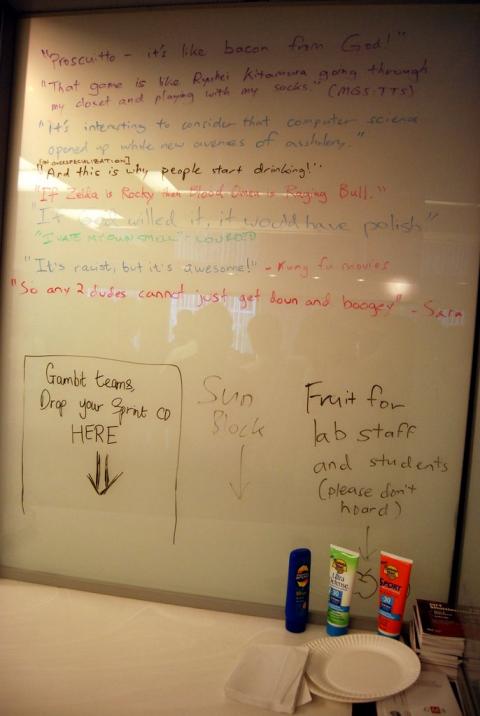 "Proscuitto - it's like bacon from God!"
"That game is like Ryuhei Kitamura going through
my closet and playing with my socks." (MGS:TTS)
"It's interesting to consider that computer science
opened up whole new avenues of assholery."
[ON OVERSPECIALIZATION]
"And this is why people start drinking!"
"If Zelda is Rocky then Blood Omen is Raging Bull."
"If God willed it, it would have polish"
"I HATE MY OWN SMELL"
"It's racist, but it's awesome!" - Kung fu movies
"So any 2 dudes cannot just get down and boogey" - Sara
Gambit teams,
Drop your Sprint CD
HERE
Sun
Block
Fruit for
lab staff
and students
(please don't
hoard)
Ultra
Defense
30
SPORT
30